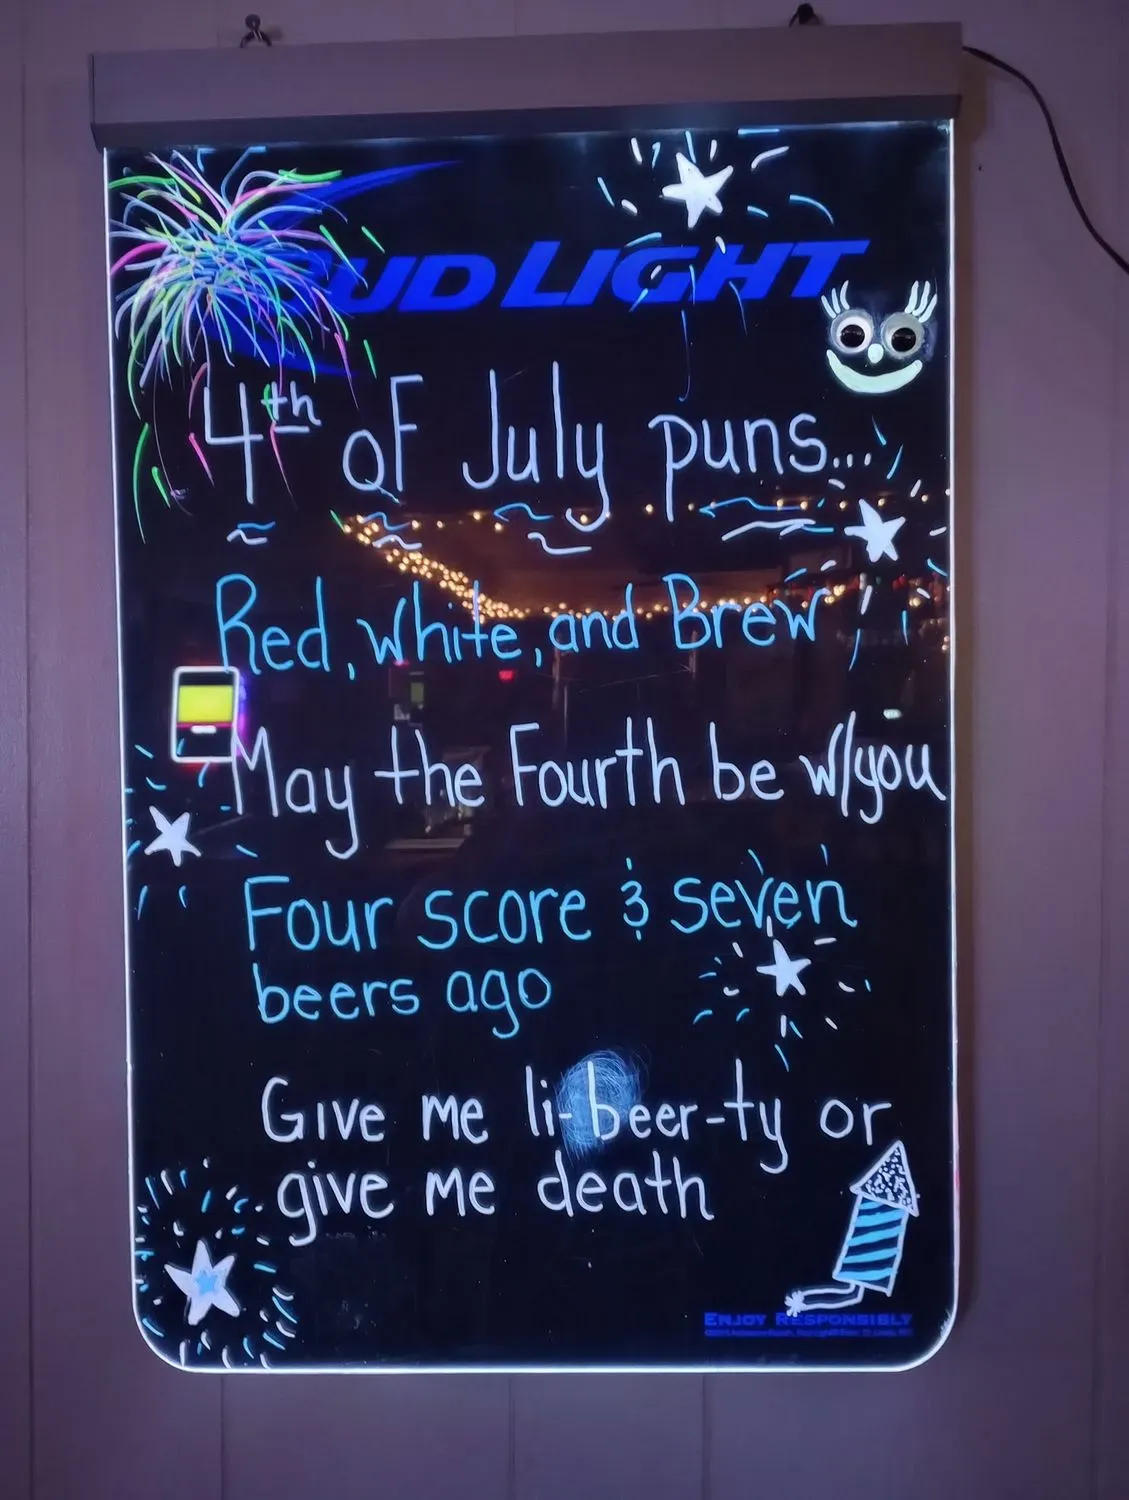 BUD LIGHT
4th of July puns...
Red, White, and Brew
May the Fourth be w/you
Four score & seven
beers ago
Give me li-beer-ty or
give me death
ENJOY RESPONSIBLY